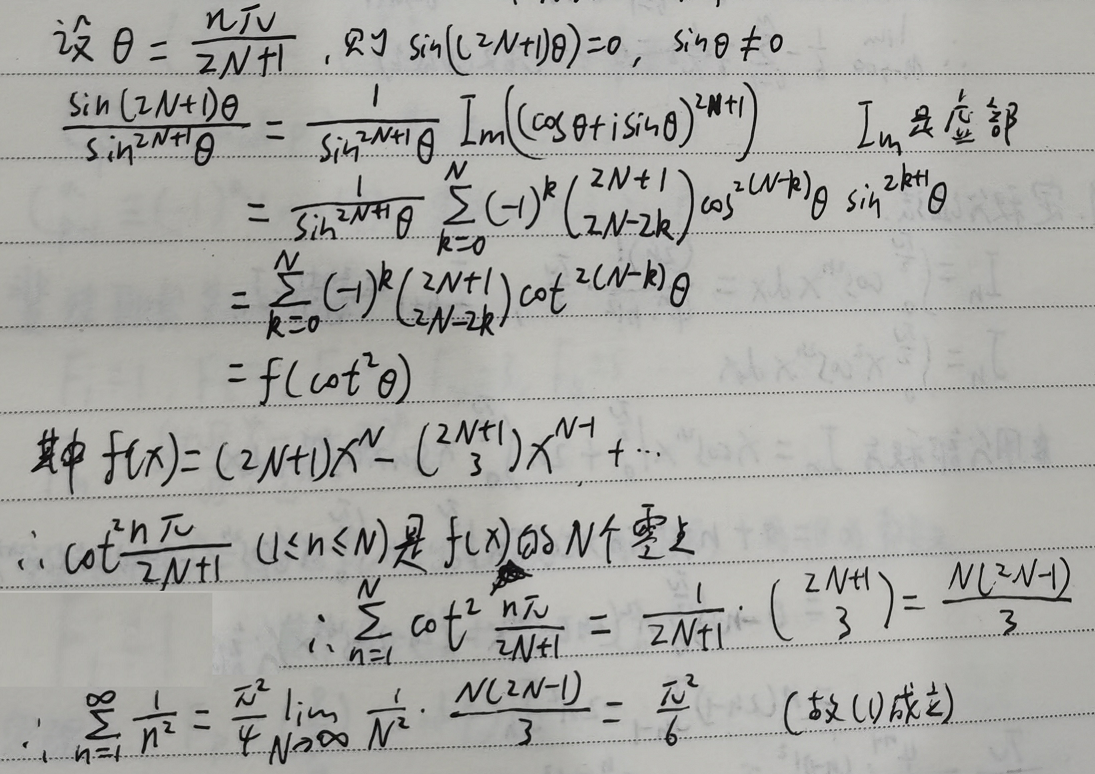 设 θ = nπ/(2N+1) , 则 sin((2N+1)θ)=0, sinθ≠0
sin(2N+1)θ / sin^{2N+1}θ = 1/sin^{2N+1}θ Im((cosθ+isinθ)^{2N+1}) Im是虚部
= 1/sin^{2N+1}θ ∑_{k=0}^{N} (-1)^k \binom{2N+1}{2N-2k} cos^{2(N-k)}θ sin^{2k+1}θ
= ∑_{k=0}^{N} (-1)^k \binom{2N+1}{2N-2k} cot^{2(N-k)}θ
= f(cot²θ)
其中 f(x) = (2N+1)x^N - \binom{2N+1}{3} x^{N-1} + …
∴ cot² nπ/(2N+1) (1≤n≤N) 是 f(x) 的 N个零点
∴ ∑_{n=1}^{N} cot² nπ/(2N+1) = 1/(2N+1) · \binom{2N+1}{3} = N(2N-1)/3
∴ ∑_{n=1}^{∞} 1/n² = π²/4 lim_{N→∞} 1/N² · N(2N-1)/3 = π²/6 (故(1)成立)